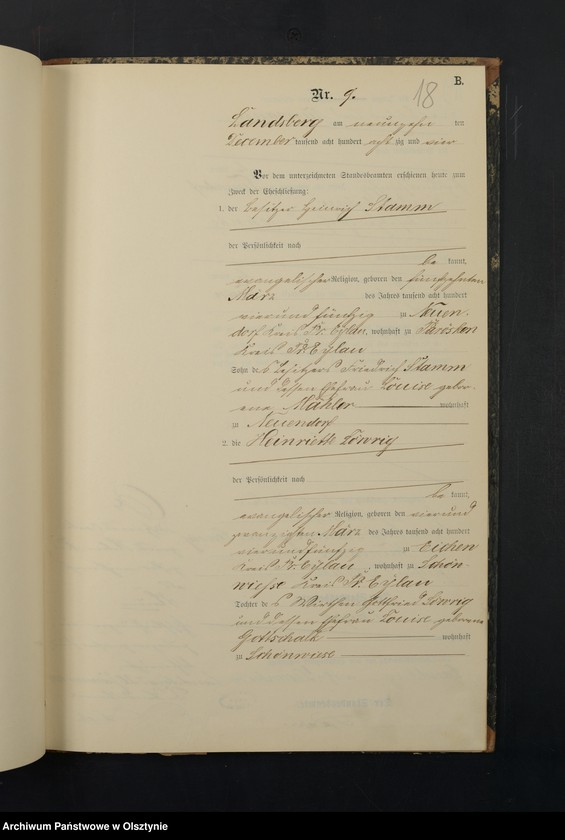 18
B.
Nr. 9.
Landsberg am neunzehn ten
December tausend acht hundert achtzig und vier
Vor dem unterzeichneten Standesbeamten erschienen heute zum
Zweck der Eheschließung:
1. der Besitzer Heinrich Stamm
der Persönlichkeit nach
be kannt,
evangelischer Religion, geboren den fünfzehnten
März des Jahres tausend acht hundert
vierund fünfzig zu Neuen-
dorf Kreis Pr. Eylau, wohnhaft zu
Kreis Pr. Eylau
Sohn des Besitzers Friedrich Stamm
und dessen Ehefrau Louise gebor-
ene Mahler wohnhaft
zu Neuendorf
2. die Heinriette Löwrig
der Persönlichkeit nach
be kannt,
evangelischer Religion, geboren den vierund
zwanzigsten März des Jahres tausend acht hundert
vierundfünfzig zu Eichen
Kreis Pr. Eylau, wohnhaft zu Schön-
wiese Kreis Pr. Eylau
Tochter des Wirthen Gottfried Löwrig
und dessen Ehefrau Louise geborene
Gottschalk wohnhaft
zu Schönwiese
Archiwum Państwowe w Olsztynie